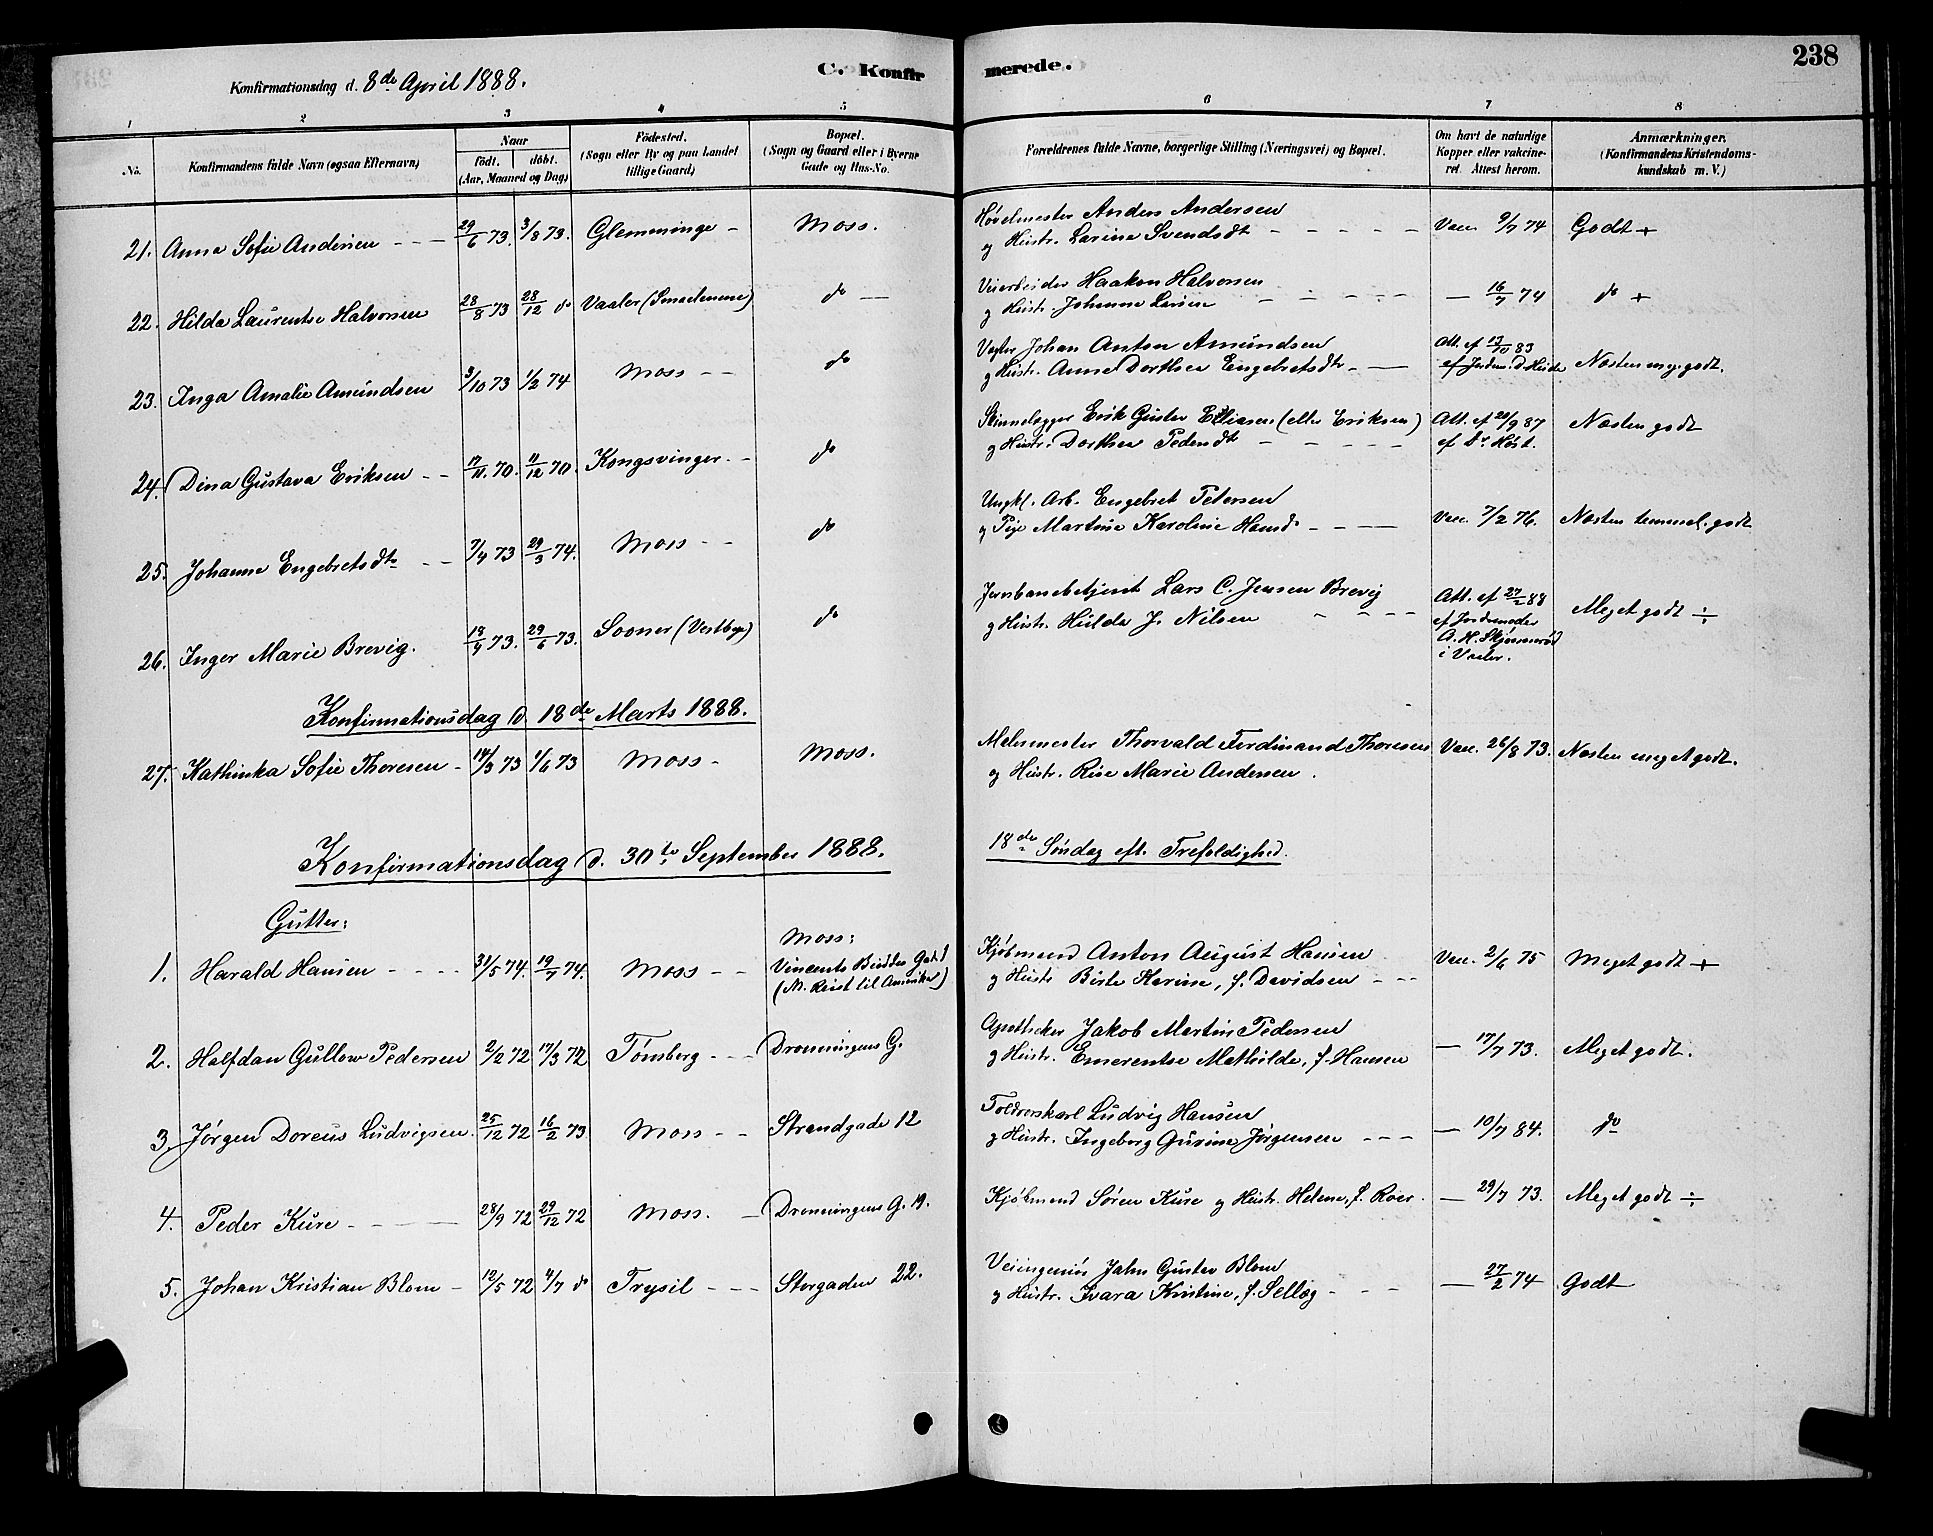 238
C. Konfir merede.
Konfirmationsdag d. 8de April 1888.
1 2 3 4 5 6 7 8
No.
Konfirmandens fulde Navn (ogsaa Efternavn)
Naar
født. døbt.
(Aar, Maaned og Dag)
Fødested.
(Sogn eller By og paa Landet
tillige Gaard)
Bopæl.
(Sogn og Gaard eller i Byerne
Gade og Hus-No.
Forældrenes fulde Navne, borgerlige Stilling (Næringsvei) og Bopæl.
Om havt de naturlige
Kopper eller vakcine-
ret. Attest herom.
Anmærkninger.
(Konfirmandens Kristendoms-
kundskab m. V.)
21. Anna Sofie Andersen - - - 29/6 73. 3/8 73. Glemminge - Moss.
Høvelmester Anders Andersen
og Hustr. Larine Svendsdt - - - - - Vacc. 9/7 74 Godt +
22. Hilda Laurentse Halvorsen 28/8 73 28/12 do Vaaler do —
Veiarbeider Haakon Halvorsen
og Hustr. Johanne Larsen - - - - — 16/7 74 do +
23. Inga Amalie Amundsen 3/10 73 1/2 74 Moss - - do
Johan Anton Amundsen
og Hustr. Anne Dorthea Engebretsdt - — Att. af 13/10 83
af Jordm. Næsten meg. godt.
24. Dina Gustava Eriksen - - 17/11 70. 11/12 70. Kongsvinger - - do
Skinnelægger Erik Gustav Eliasen (eller Eriksen)
og Hustr. Dorthea Pedersdt - - - - - Att. af 20/9 87
af Dr Høst. Næsten godt
25. Johanne Engebretsdt - - 7/4 73 29/3 74. Moss - - do
Ungkl. Arb. Engebret Petersen
og Pige Martine Karoline Hansd. - - — Vacc. 7/2 76. Næsten temmel. godt
26. Inger Marie Brevig. 18/4 73. 29/6 73. Sooner (Vestby) do
Jernbanebetjent Lars C. Jensen Brevig
og Hustr. Hulda J. Nilsen - - - - Att. af 27/2 88
af Jordemoder
A. H. Skjønnerød
i Vaaler. Meget godt ÷
Konfirmationsdag d. 18de Marts 1888.
27. Kathinka Sofie Thoresen - 14/3 73 1/6 73 Moss - Moss.
Malermester Thorvald Ferdinand Thoresen
og Hustr. Rise Marie Andersen. Vacc. 26/8 73. Næsten meget godt.
Konfirmationsdag d. 30te September 1888. 18de Søndag eft. Trefoldighed.
Gutter:
1. Harald Hansen - - - - 31/5 74. 19/7 74. Moss - - Moss:
Vincents Buddes Gade 1
(M. Reist til Amerika)
Kjøbmand Anton August Hansen
og Hustr Birte Karine, f. Davidsen - - - Vacc. 2/6 75 Meget godt +
2. Halfdan Gullow Pedersen 2/2 72 17/3 72 Tønsberg - - - Dronningens G.
Apotheker Jakob Martin Pedersen
og Hustr. Emerentse Mathilde, f. Hansen — 17/7 73. Meget godt.
3. Jørgen Doreus Ludvigsen. 25/12 72 16/2 73 Moss - - Strandgade 12
Toldrorskarl Ludvig Hansen
og Hustr. Ingeborg Gurine Jørgensen - - - — 10/7 84. do
4. Peder Kure - - — 28/9 72 29/12 72 Moss. — Dronningens G. 19.
Kjøbmand Søren Kure og Hustr. Helene, f. Roer. — 29/7 73. Meget godt ÷
5. Johan Kristian Blom - 12/5 72 4/7 do Trysil - - - Storgaden 22.
Veiingeniør Jahn Gustav Blom
og Hustr. Ivara Kristine, f. Sellæg - - - — 27/2 74 Godt